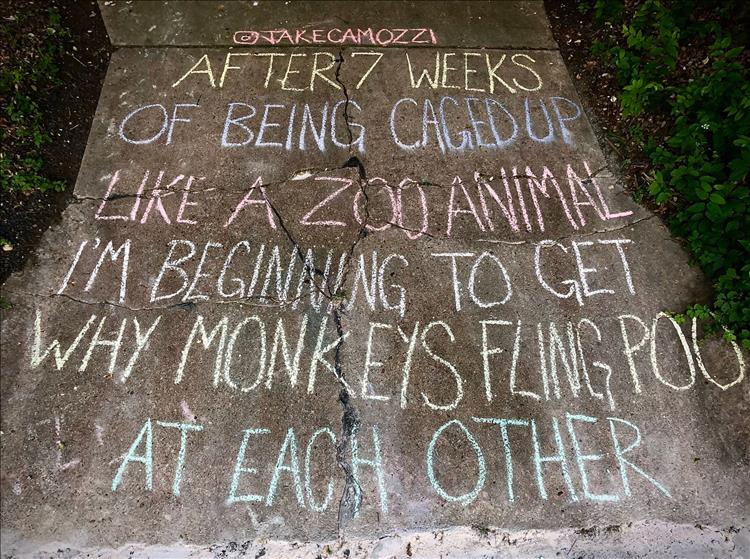 @JAKECAMOZZI
AFTER 7 WEEKS
OF BEING CAGED UP
LIKE A ZOO ANIMAL
I'M BEGINNING TO GET
WHY MONKEYS FLING POO
AT EACH OTHER